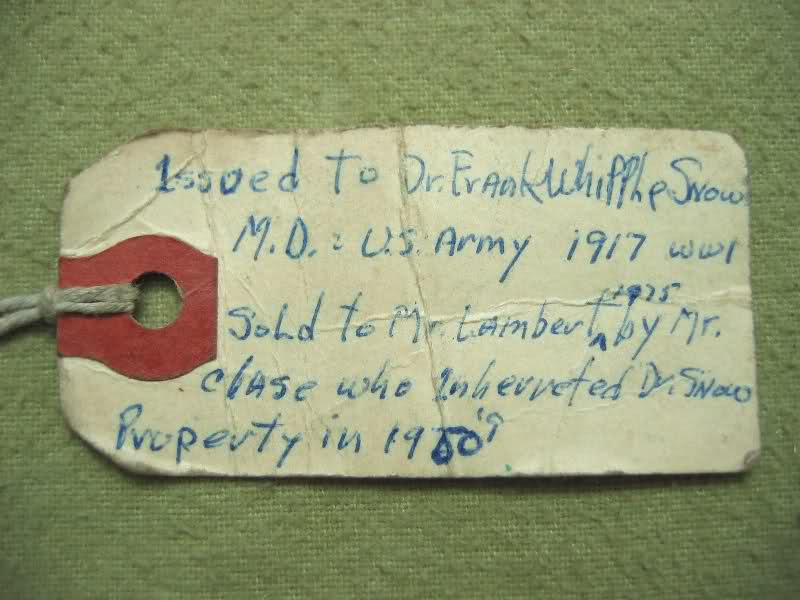 Issued To Dr. Frank Whipple Snow
M.D. : U.S. Army 1917 WW1
1975
Sold to Mr. Lambert ^ by Mr.
Chase who Inherreted Dr. Snow
Property in